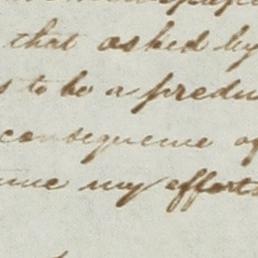 that asked by
to be a
consequence of
my efforts